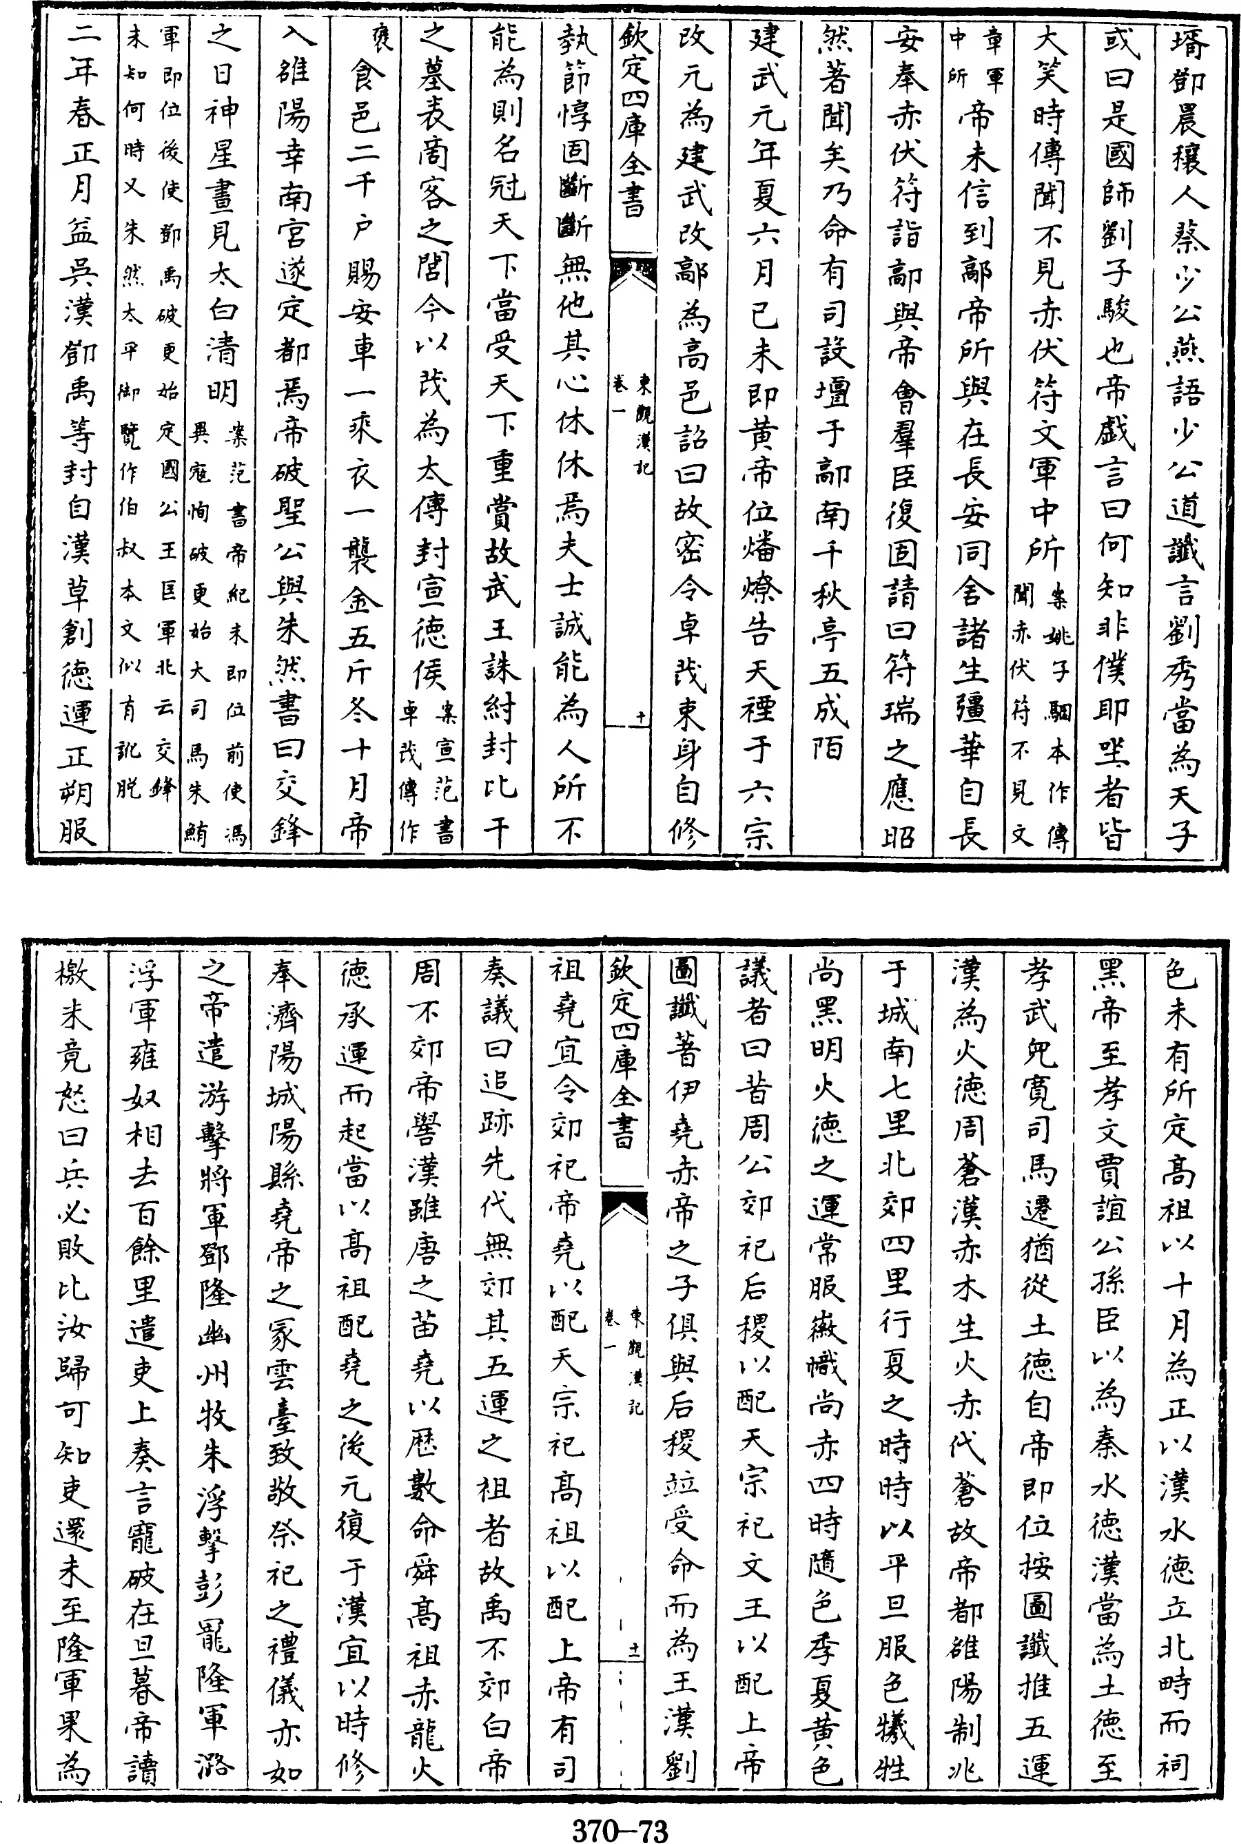 壻鄧晨穰人蔡少公燕語少公道讖言劉秀當為天子
或曰是國師劉子駿也帝戲言曰何知非僕耶坐者皆
大笑時傳聞不見赤伏符文軍中所案姚子駰本作傳聞赤伏符不見文
章軍中所帝未信到鄗帝所與在長安同舍諸生彊華自長
安奉赤伏符詣鄗與帝會羣臣復固請曰符瑞之應昭
然著聞矣乃命有司設壇于鄗南千秋亭五成陌
建武元年夏六月己未即黃帝位燔燎告天禋于六宗
改元為建武改鄗為高邑詔曰故密令卓茂束身自修
欽定四庫全書 東觀漢記 卷一 十
執節惇固斷斷無他其心休休焉夫士誠能為人所不
能為則名冠天下當受天下重賞故武王誅紂封比干
之墓表商容之閭今以茂為太傅封宣德侯案宣范書卓茂傳作
褒食邑二千户賜安車一乘衣一襲金五斤冬十月帝
入雒陽幸南宮遂定都焉帝破聖公與朱然書曰交鋒
之日神星晝見太白清明案范書帝紀未即位前使馮異寇恂破更始大司馬朱鮪
軍即位後使鄧禹破更始定國公王匡軍此云交鋒未知何時又朱然太平御覽作伯叔本文似有訛脱
二年春正月益吳漢鄧禹等封自漢草創德運正朔服
色未有所定高祖以十月為正以漢水德立北畤而祠
黑帝至孝文賈誼公孫臣以為秦水德漢當為土德至
孝武兒寬司馬遷猶從土德自帝即位按圖讖推五運
漢為火德周蒼漢赤木生火赤代蒼故帝都雒陽制兆
于城南七里北郊四里行夏之時時以平旦服色犧牲
尚黑明火德之運常服徽幟尚赤四時隨色季夏黃色
議者曰昔周公郊祀后稷以配天宗祀文王以配上帝
圖讖著伊堯赤帝之子俱與后稷竝受命而為王漢劉
欽定四庫全書 東觀漢記 卷一 十一
祖堯宜令郊祀帝堯以配天宗祀高祖以配上帝有司
奏議曰追跡先代無郊其五運之祖者故禹不郊白帝
周不郊帝嚳漢雖唐之苗堯以歷數命舜高祖赤龍火
德承運而起當以高祖配堯之後元復于漢宜以時修
奉濟陽城陽縣堯帝之冢雲臺致敬祭祀之禮儀亦如
之帝遣游擊將軍鄧隆幽州牧朱浮擊彭寵隆軍潞
浮軍雍奴相去百餘里遣吏上奏言寵破在旦暮帝讀
檄未竟怒曰兵必敗比汝歸可知吏還未至隆軍果為
370-73